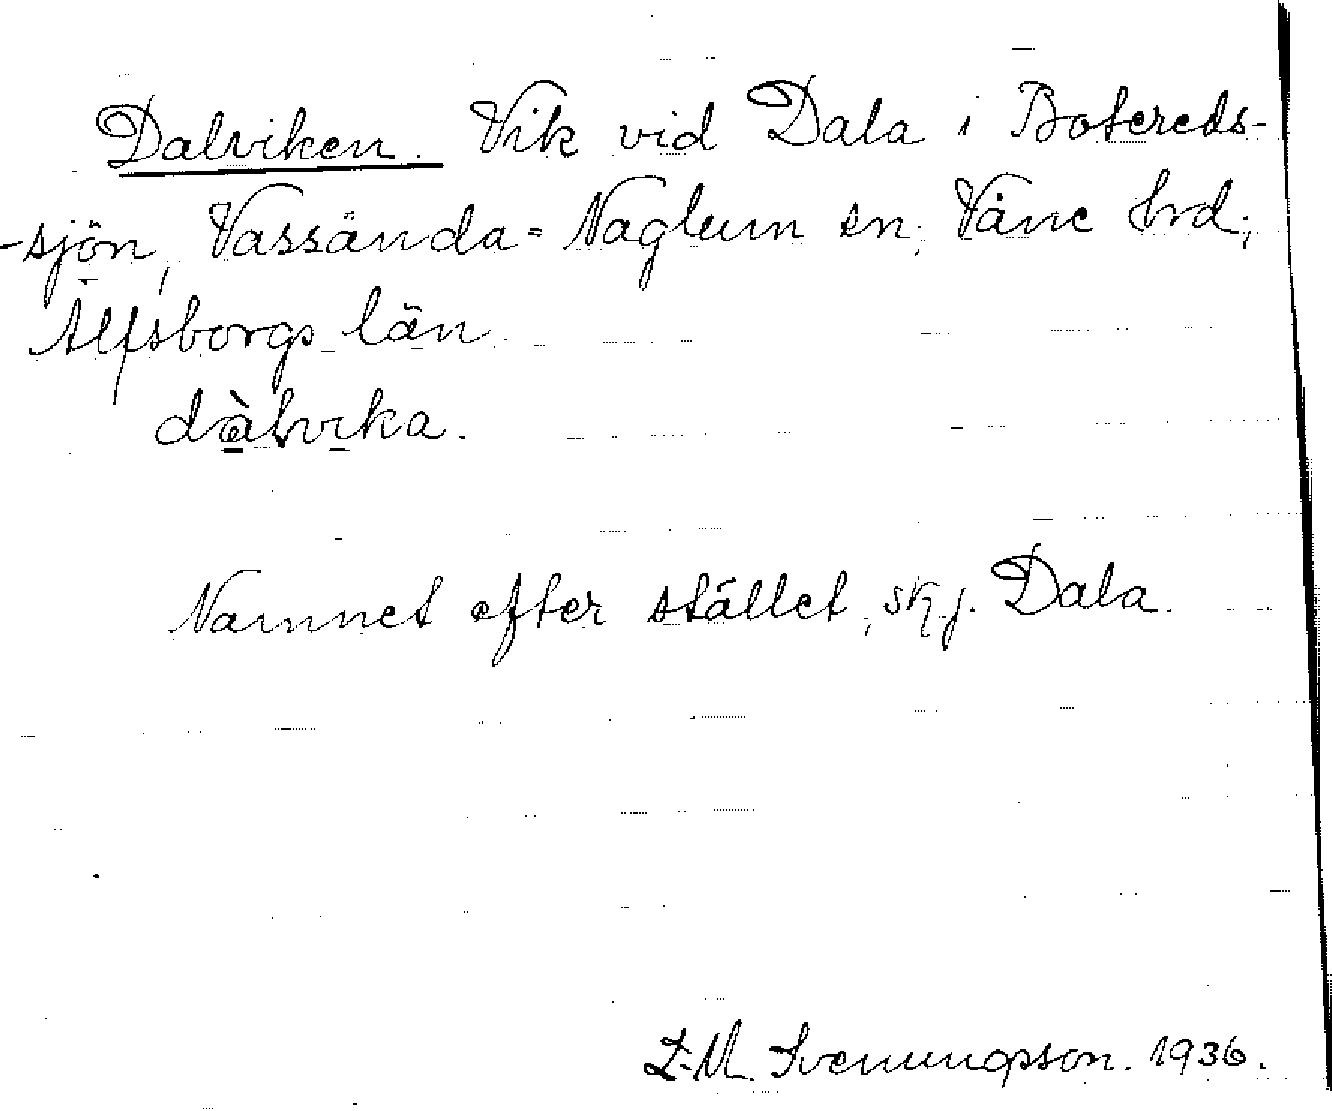 Dalviken. Vik vid Dala i Botereds-
-sjön, Vassända-Naglum sn, Väne hrd,
Älfsborgs län
dàlvika.
Namnet efter stället, skj. Dala.
Svenungsson. 1936.